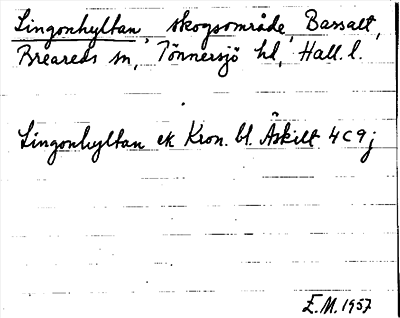 Lingonhyltan, skogsområde, Bassalt,
Breareds sn, Tönnersjö hd, Hall. l.
Lingonhyltan ek Kron. bl. Äskilt 4C9j
E.M. 1957